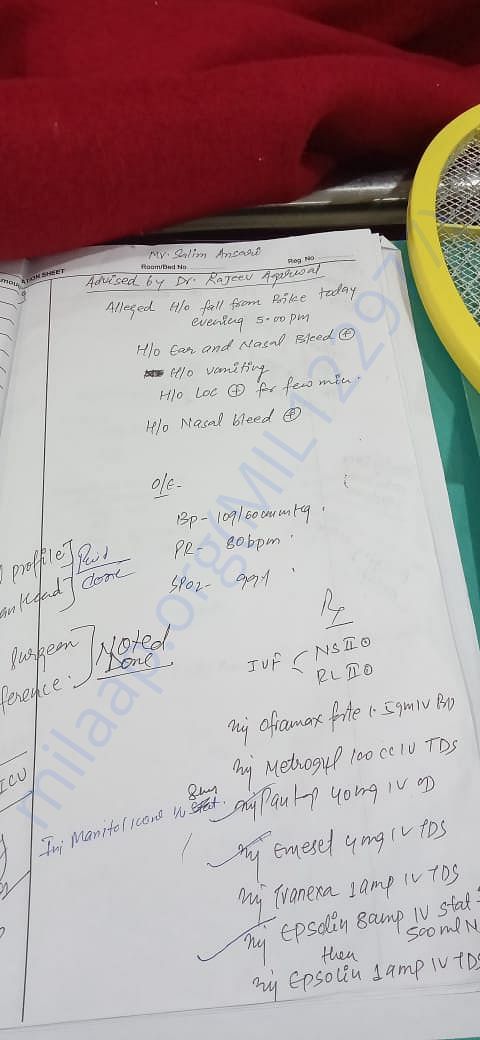 Mr. Salim Ansari
ATION SHEET
Room/Bed No.
Reg. No
Advised by Dr. Rajeev Agarwal
Alleged H/o fall from Bike today
evening 5.00 pm
H/o Ear and Nasal Bleed ⊕
H/o vomiting
H/o LOC ⊕ for few min.
H/o Nasal bleed ⊕
O/E-
BP- 109/60mmHg
PR- 80bpm
SPO2- 99%
profile
done
Surgeon
ference.
Noted
Done
ICU
Rx
IVF < NS II
RL II
Inj Oframax forte 1.5gm IV BD
Inj Metrogyl 100 cc IV TDS
Inj Pantop 40mg IV OD
Inj Manitol 100cc IV stat. 8hrly
Inj Emeset 4mg IV TDS
Inj Tranexa 1amp IV TDS
Inj EPSOLIN 8amp IV stat
500ml N
then
Inj EPSOLIN 1amp IV TDS
milaap.org/MIL122971